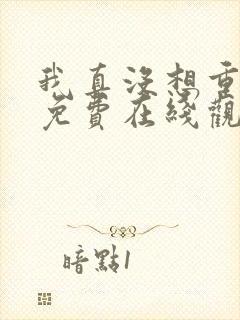 我真沒想重
免費在綫觀
暗點1